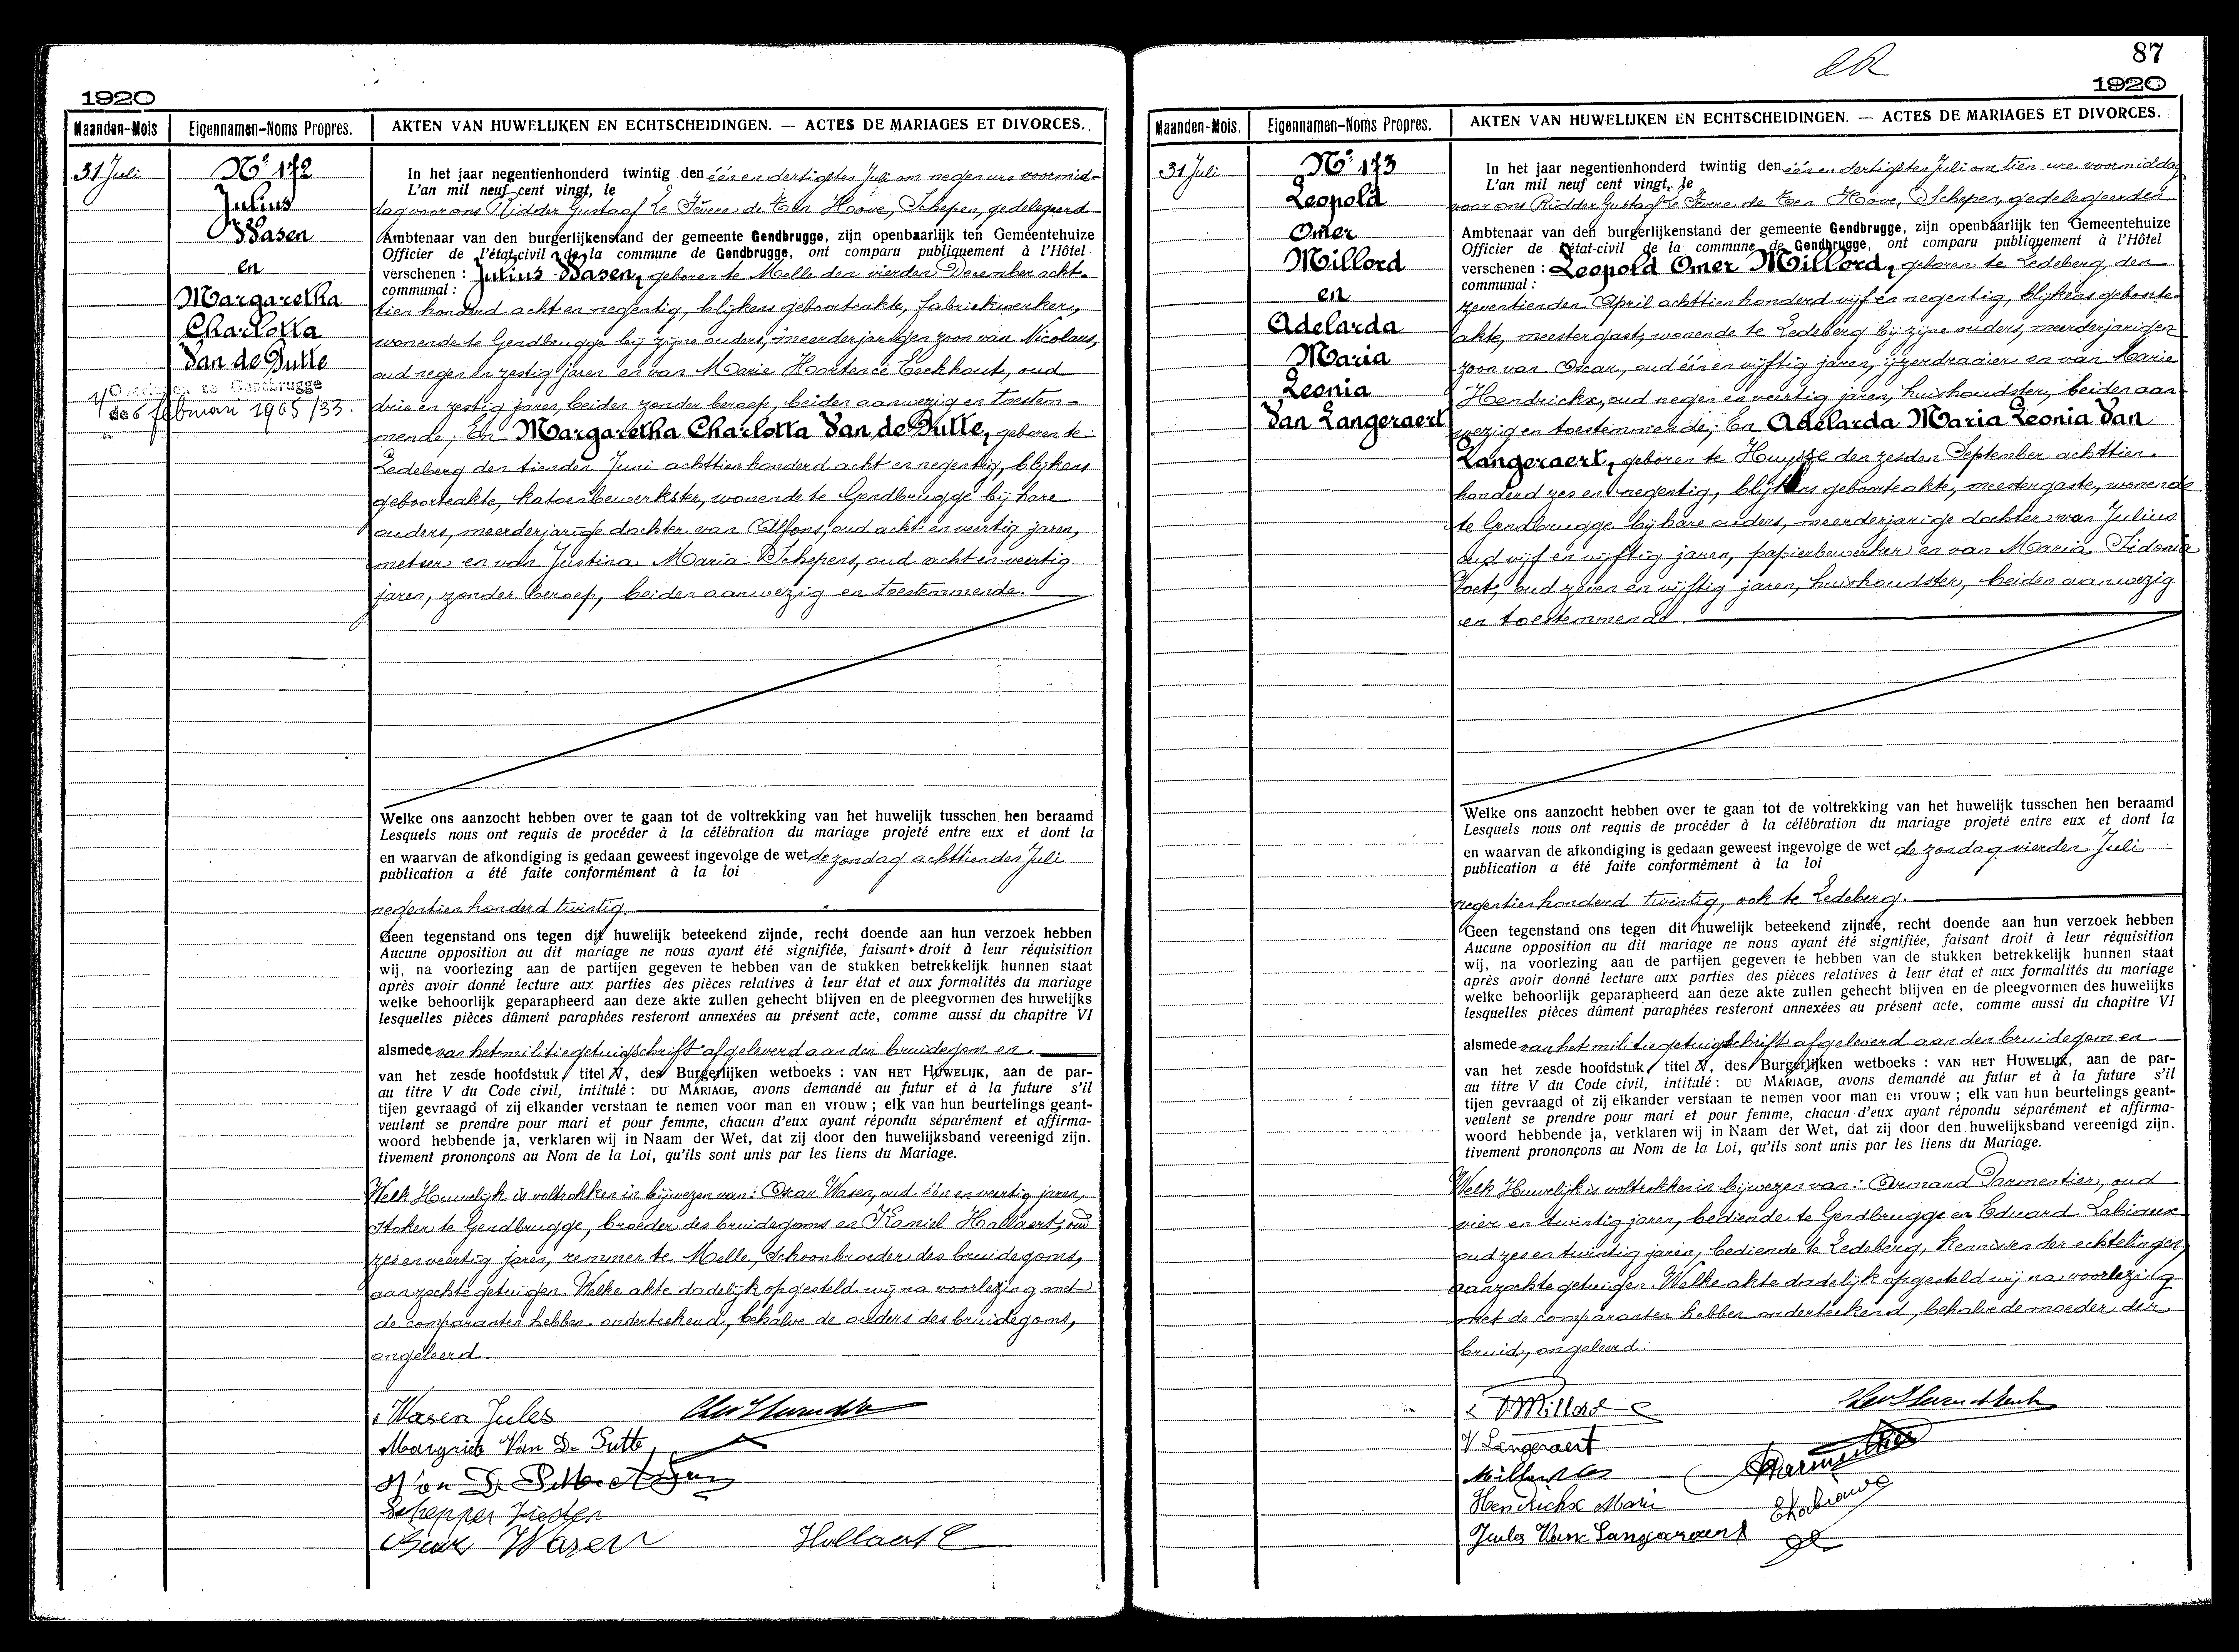 1920
Maanden-Mois
Eigennamen-Noms Propres.
AKTEN VAN HUWELIJKEN EN ECHTSCHEIDINGEN. — ACTES DE MARIAGES ET DIVORCES.
31 Juli
No 172
Julius
Wasen
en
Margaretha
Charlotta
Van de Putte
6 februari 1965/33.
In het jaar negentienhonderd twintig den één en dertigsten Juli om negen ure voormid-
L'an mil neuf cent vingt, le
dag voor ons Ridder Gustaaf Le Fèvere de Ten Hoove, Schepen, gedelegeerd
Ambtenaar van den burgerlijkenstand der gemeente Gendbrugge, zijn openbaarlijk ten Gemeentehuize
Officier de l'état-civil de la commune de Gendbrugge, ont comparu publiquement à l'Hôtel
verschenen : Julius Wasen, geboren te Melle den vierden December acht-
communal :
tien honderd acht en negentig, blijkens geboorteakte, fabriekwerker,
wonende te Gendbrugge bij zijne ouders, meerderjarigen zoon van Nicolaus,
oud negen en zestig jaren en van Marie Hortence Eeckhout, oud
drie en zestig jaren, beiden zonder beroep, beiden aanwezig en toestem-
mende; En Margaretha Charlotta Van de Putte, geboren te
Ledeberg den tienden Juni achttien honderd acht en negentig, blijkens
geboorteakte, katoenbewerkster, wonende te Gendbrugge bij hare
ouders, meerderjarige dochter van Alfons, oud acht en veertig jaren,
metser en van Justina Maria Schepens, oud acht en veertig
jaren, zonder beroep, beiden aanwezig en toestemmende.
Welke ons aanzocht hebben over te gaan tot de voltrekking van het huwelijk tusschen hen beraamd
Lesquels nous ont requis de procéder à la célébration du mariage projeté entre eux et dont la
en waarvan de afkondiging is gedaan geweest ingevolge de wet de zondag achttienden Juli
publication a été faite conformément à la loi
negentien honderd twintig.
Geen tegenstand ons tegen dit huwelijk beteekend zijnde, recht doende aan hun verzoek hebben
Aucune opposition au dit mariage ne nous ayant été signifiée, faisant droit à leur réquisition
wij, na voorlezing aan de partijen gegeven te hebben van de stukken betrekkelijk hunnen staat
après avoir donné lecture aux parties des pièces relatives à leur état et aux formalités du mariage
welke behoorlijk geparapheerd aan deze akte zullen gehecht blijven en de pleegvormen des huwelijks
lesquelles pièces dûment paraphées resteront annexées au présent acte, comme aussi du chapitre VI
alsmede van het militiegetuigschrift afgeleverd aan den bruidegom en
van het zesde hoofdstuk, titel V, des Burgerlijken wetboeks : VAN HET HUWELIJK, aan de par-
au titre V du Code civil, intitulé : DU MARIAGE, avons demandé au futur et à la future s'il
tijen gevraagd of zij elkander verstaan te nemen voor man en vrouw ; elk van hun beurtelings geant-
veulent se prendre pour mari et pour femme, chacun d'eux ayant répondu séparément et affirma-
woord hebbende ja, verklaren wij in Naam der Wet, dat zij door den huwelijksband vereenigd zijn.
tivement prononçons au Nom de la Loi, qu'ils sont unis par les liens du Mariage.
Welk Huwelijk is voltrokken in bijwezen van: Oscar Wasen, oud één en veertig jaren,
stoker te Gendbrugge, broeder des bruidegoms en Kamiel Hollaert, oud
zes en veertig jaren, remmer te Melle, Schoonbroeder des bruidegoms,
aanzochte getuigen. Welke akte dadelijk opgesteld wij na voorlezing met
de comparanten hebben onderteekend, behalve de ouders des bruidegoms,
ongeleerd.
Wasen Jules
Margriet Van De Putte
Wasen
Hollaert C
87
1920
Maanden-Mois.
Eigennamen-Noms Propres.
AKTEN VAN HUWELIJKEN EN ECHTSCHEIDINGEN. — ACTES DE MARIAGES ET DIVORCES.
31 Juli
No 173
Leopold
Omer
Millord
en
Adelarda
Maria
Leonia
Van Langeraert
In het jaar negentienhonderd twintig den één en dertigsten Juli om tien ure voormiddag
L'an mil neuf cent vingt, le
voor ons Ridder Gustaaf Le Fèvere de Ten Hoove, Schepen, gedelegeerden
Ambtenaar van den burgerlijkenstand der gemeente Gendbrugge, zijn openbaarlijk ten Gemeentehuize
Officier de l'état-civil de la commune de Gendbrugge, ont comparu publiquement à l'Hôtel
verschenen : Leopold Omer Millord, geboren te Ledeberg den
communal :
zeventienden April achttien honderd vijf en negentig, blijkens geboorte-
akte, meestergast, wonende te Ledeberg bij zijne ouders, meerderjarigen
zoon van Oscar, oud één en vijftig jaren, ijzerdraaier en van Marie
Hendrickx, oud negen en veertig jaren, huishoudster, beiden aan-
wezig en toestemmende; En Adelarda Maria Leonia Van
Langeraert, geboren te Huysse den zesden September achttien
honderd zes en negentig, blijkens geboorteakte, meestergaste, wonende
te Gendbrugge bij hare ouders, meerderjarige dochter van Julius
oud vijf en vijftig jaren, papierbewerker en van Maria Sidonia
Voet, oud zeven en vijftig jaren, huishoudster, beiden aanwezig
en toestemmende.
Welke ons aanzocht hebben over te gaan tot de voltrekking van het huwelijk tusschen hen beraamd
Lesquels nous ont requis de procéder à la célébration du mariage projeté entre eux et dont la
en waarvan de afkondiging is gedaan geweest ingevolge de wet de zondag vierden Juli
publication a été faite conformément à la loi
negentien honderd twintig, ook te Ledeberg.
Geen tegenstand ons tegen dit huwelijk beteekend zijnde, recht doende aan hun verzoek hebben
Aucune opposition au dit mariage ne nous ayant été signifiée, faisant droit à leur réquisition
wij, na voorlezing aan de partijen gegeven te hebben van de stukken betrekkelijk hunnen staat
après avoir donné lecture aux parties des pièces relatives à leur état et aux formalités du mariage
welke behoorlijk geparapheerd aan deze akte zullen gehecht blijven en de pleegvormen des huwelijks
lesquelles pièces dûment paraphées resteront annexées au présent acte, comme aussi du chapitre VI
alsmede van het militiegetuigschrift afgeleverd aan den bruidegom en
van het zesde hoofdstuk, titel V, des Burgerlijken wetboeks : VAN HET HUWELIJK, aan de par-
au titre V du Code civil, intitulé : DU MARIAGE, avons demandé au futur et à la future s'il
tijen gevraagd of zij elkander verstaan te nemen voor man en vrouw ; elk van hun beurtelings geant-
veulent se prendre pour mari et pour femme, chacun d'eux ayant répondu séparément et affirma-
woord hebbende ja, verklaren wij in Naam der Wet, dat zij door den huwelijksband vereenigd zijn.
tivement prononçons au Nom de la Loi, qu'ils sont unis par les liens du Mariage.
Welk Huwelijk is voltrokken in bijwezen van: Armand Parmentier, oud
vier en twintig jaren, bediende te Gendbrugge en Eduard Labiaux
oud zes en twintig jaren, bediende te Ledeberg, kennissen der echtelingen,
aanzochte getuigen. Welke akte dadelijk opgesteld wij na voorlezing
met de comparanten hebben onderteekend, behalve de moeder der
bruid, ongeleerd.
Millord
V Langeraert
Hendrickx Mari
Jules Van Langeraert